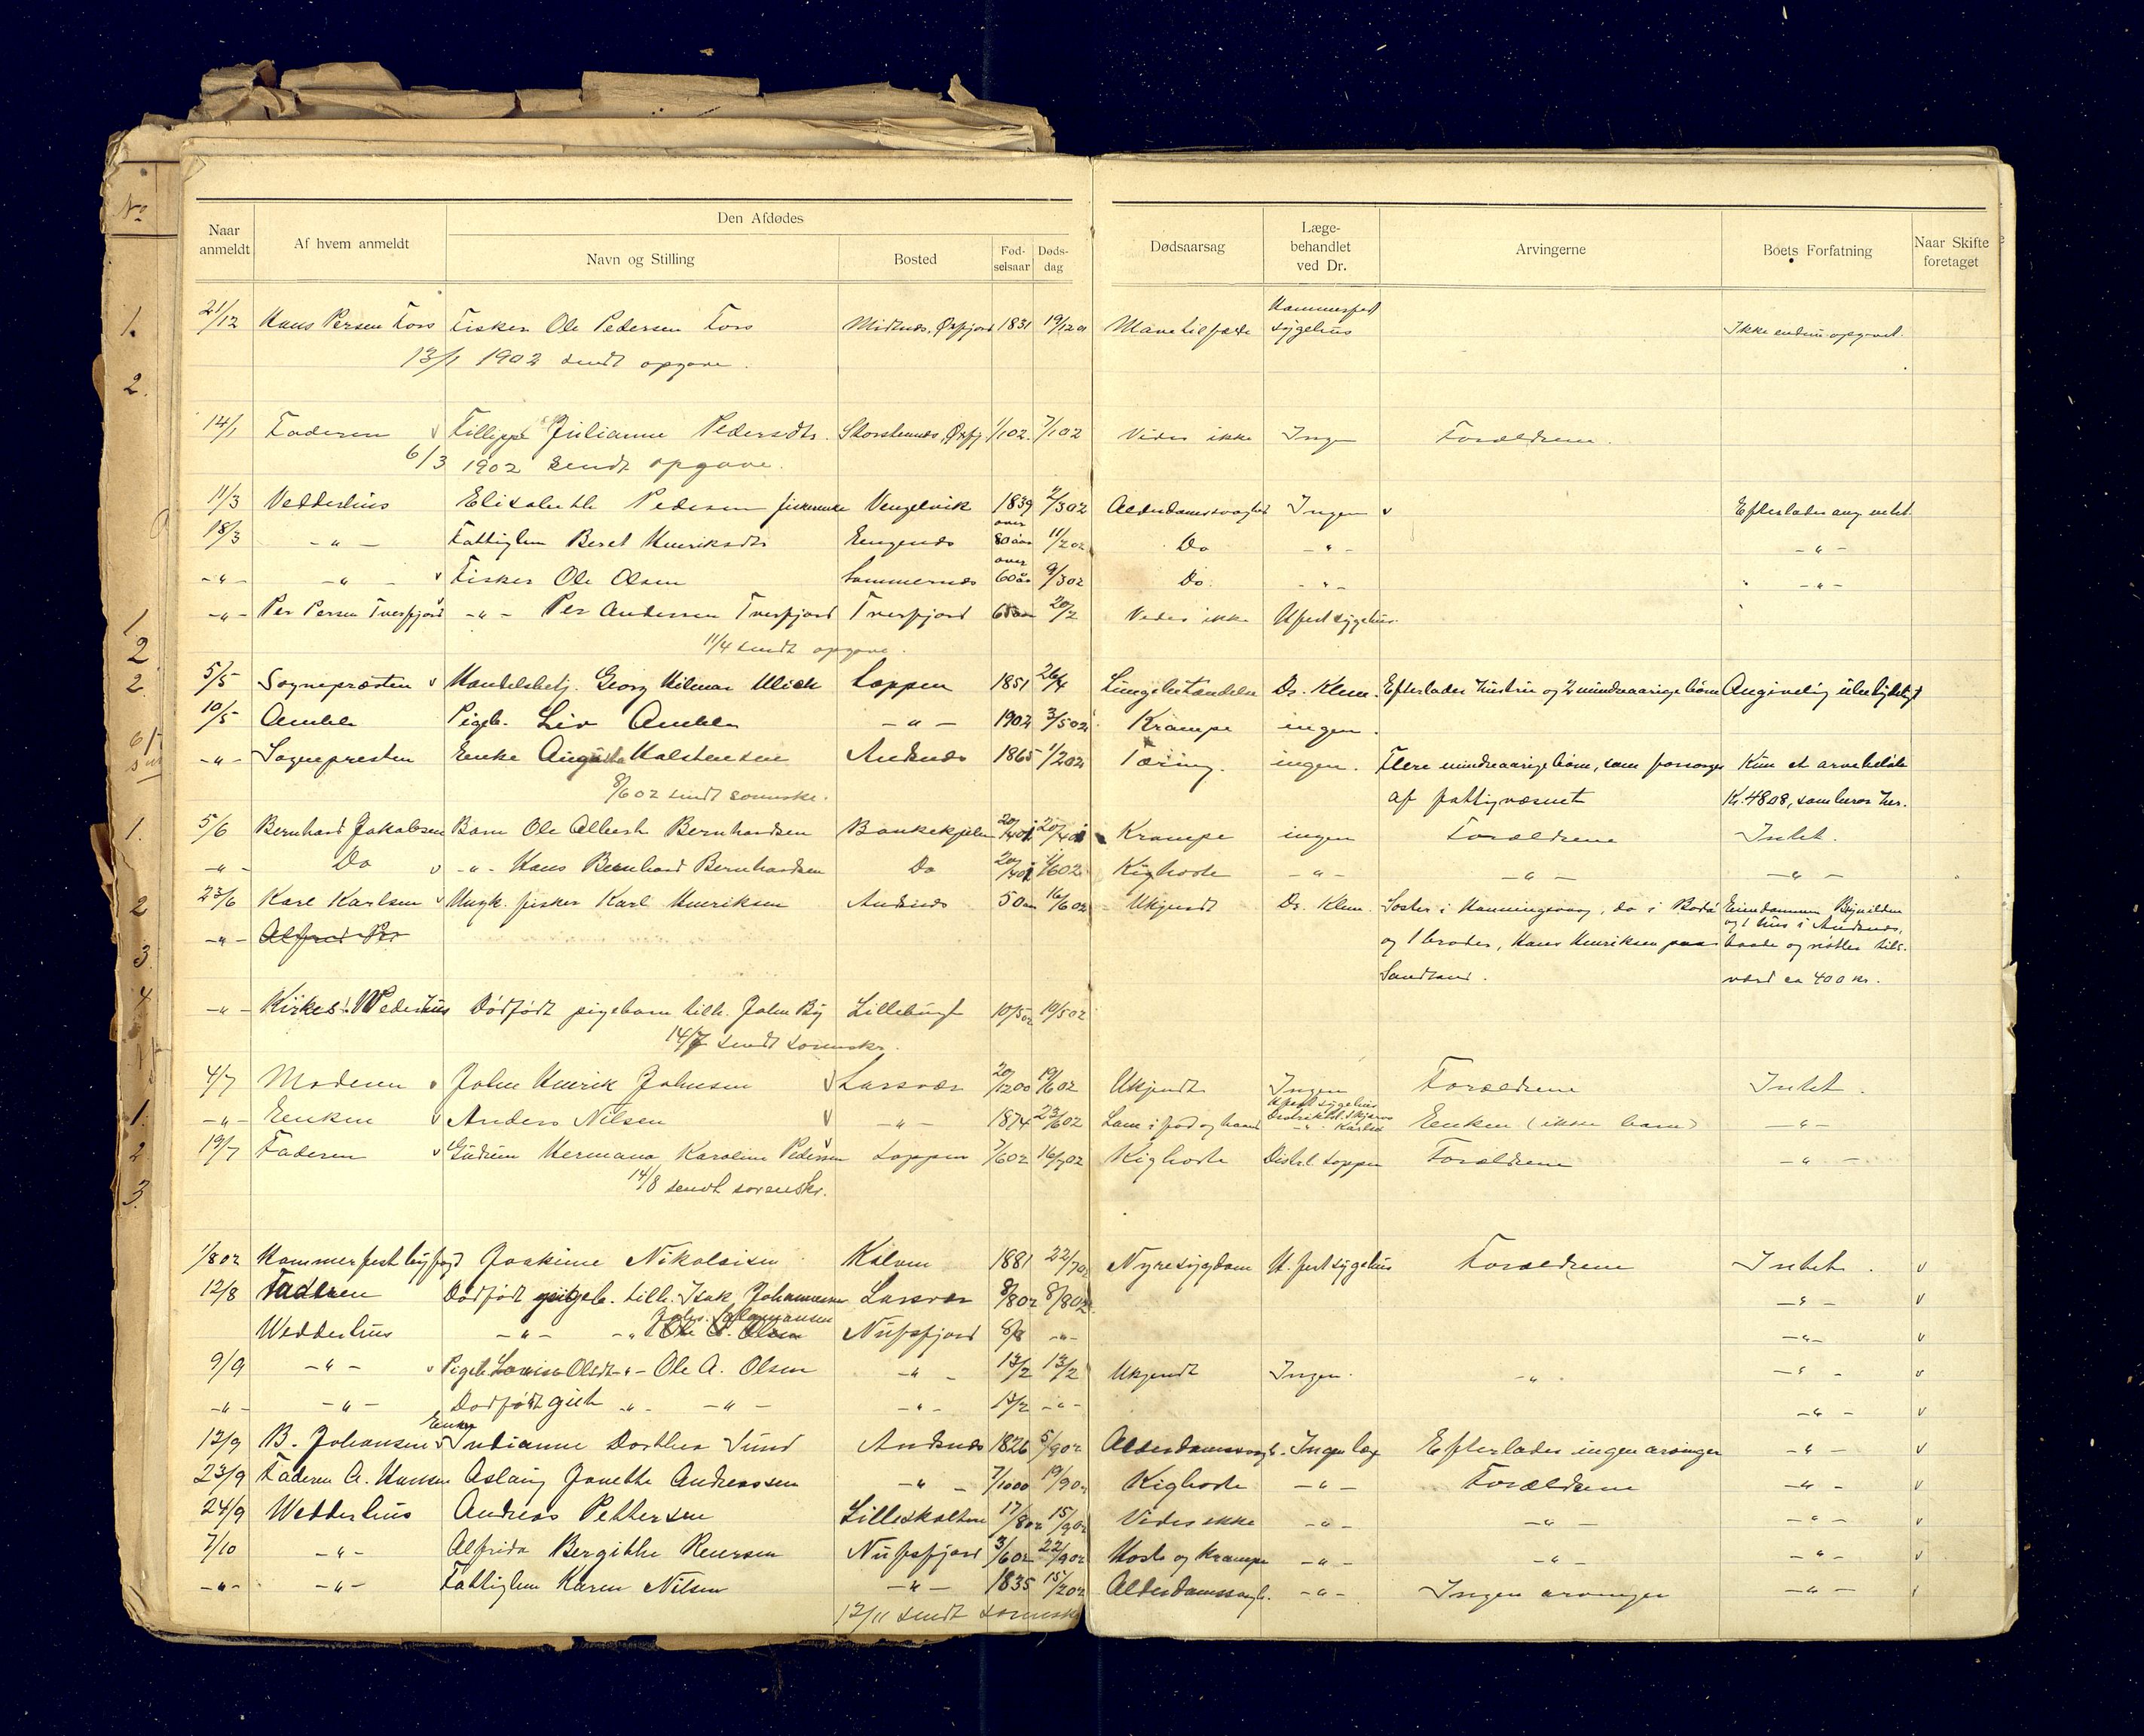 No
1.
2.
1.
2.
2.
1.
2
3.
4
1.
2
3.
Den Afdødes
Naar anmeldt Af hvem anmeldt Navn og Stilling Bosted Fød-selsaar Døds-dag Dødsaarsag Læge-behandlet ved Dr. Arvingerne Boets Forfatning Naar Skifte foretaget
21/12 Hans Persen Fors Fisker Ole Pedersen Fors Øxfjord 1831 19/12 01 Mavetilfælde Hammerfest sygehus Ikke endnu opgivet.
13/1 1902 sendt opgave.
14/1 Faderen v Julianne Pedersdtr. Øxfj. 1/1 02. 7/1 02 Vides ikke Ingen Forældrene.
6/3 1902 sendt opgave.
11/3 Vedderhus Elisabeth Pedersen fiskerenke Vengelvik 1839 2/3 02 Alderdomssvaghed Ingen v Efterlader ang. intet.
18/3 -"- Fattiglem Beret Henriksdtr over 80 aar 11/2 02 Do -"- -"-
-"- -"- v Fisker Ole Olsen over 60 år 9/3 02 Do. -"- -"-
-"- Per Persen Tverfjord -"- Per Andersen Tverfjord Tverfjord 20/2 Vedes ikke Hfest sygehus.
11/4 sendt opgave.
5/5 Sognepræsten v Handelsbetj. Georg Hilmar Ulich Loppen 1851 26/4 Lungebetændelse Dr. Klem. Efterlader hustru og 2 mindreaarige børn Angivelig ubehjdeligt
10/5 Amble Pigeb. Liv Amble -"- 1902 3/5 02 Krampe ingen.
-"- Sognepresten Enke Augusta Halstensen Andsnæs 1865 1/2 02 Tæring. ingen. Flere mindreaarige børn, som forsørges Kun et arvebeløb
8/6 02 sendt sorenskr. af fattigvæsnet Kr. 48 08, som beror her.
5/6 Bernhard Jakobsen Barn Ole Albert Bernhardsen Bankekjeilen 20/4 02 20/4 02 Krampe ingen Forældrene Intet.
-"- Do v -"- Hans Bernhard Bernhardsen Do 20/4 02 1/6 02 Kighoste -"- -"- -"-
23/6 Karl Karlsen v Ungk. fisker Karl Henriksen Andsnæs 50 aar 16/6 02 Ukjendt Dr. Klem. Søster i Honningsvaag, do i Bodø Eiendommen
-"- Alfred Per og 1 hus i Andsnæs,
og 1 broder, Hans Henriksen paa baade og nøtter tils.
Sandland. værd ca 400 kr.
-"- Kirkes. Wedderhus Dødfødt pigebarn tilh. John By Lillebugt 10/5 02 10/5 02
14/7 sendt sorenskr.
4/7 Moderen v John Henrik Johnsen v Larsvær 20/12 00 19/6 02 Ukjendt Ingen Forældrene Intet.
-"- Enken v Anders Nilsen v -"- 1874 23/6 02 Lam i fod og haand Hfest sygehus Distriktsl. Skjærvø -"- Karlsø Enken (ikke barn) -"-
19/7 Faderen v Gudrun Hermana Karoline Pedersen Loppen 7/6 02 16/7 02 Kighoste Distr.l Loppen Forældrene -"-
14/8 sendt sorenskr.
1/8 02 Hammerfest byfogd Joakime Nikolaisen Kalven 1881 22/7 02 Nyresygdom H.fest sygehus Forældrene Intet. v
12/8 Faderen Dødfødt pigeb. tilh. Isak Johannesen Larsvær 8/8 02 8/8 02 -"- v
Wedderhus -"- -"- Ole A. Olsen Nufsfjord 8/8 -"- -"- v
9/9 -"- v Pigeb Lovise Olsdt -"- Ole A. Olsen -"- 13/2 13/2 Ukjendt Ingen. -"- -"- v
-"- -"- Dødfødt gut -"- -"- -"- 13/2 -"- -"- v
12/9 B. Johansen v Enke Indianne Dorthea Sund Andsnæs 1826 5/9 02 Alderdomssvagh. Ingen læge Efterlader ingen arvinger -"- v
23/9 Faderen A. Hansen Aslaug Janette Andreassen -"- 7/10 00 19/9 02 Kighoste -"- Forældrene -"- v
24/9 Wedderhus Andreas Pettersen Lilleskalten 17/8 02 15/9 02 Vides ikke -"- -"- -"- v
7/10 -"- Alfrida Bergithe Reiersen Nufsfjord 3/6 02 22/9 02 Hoste og Krampe -"- -"- -"- v
-"- -"- Fattiglem Karen Nilsen -"- 1835 15/2 02 Alderdomssvagh. -"- Ingen arvinger -"-
12/11 sendt sorenskr